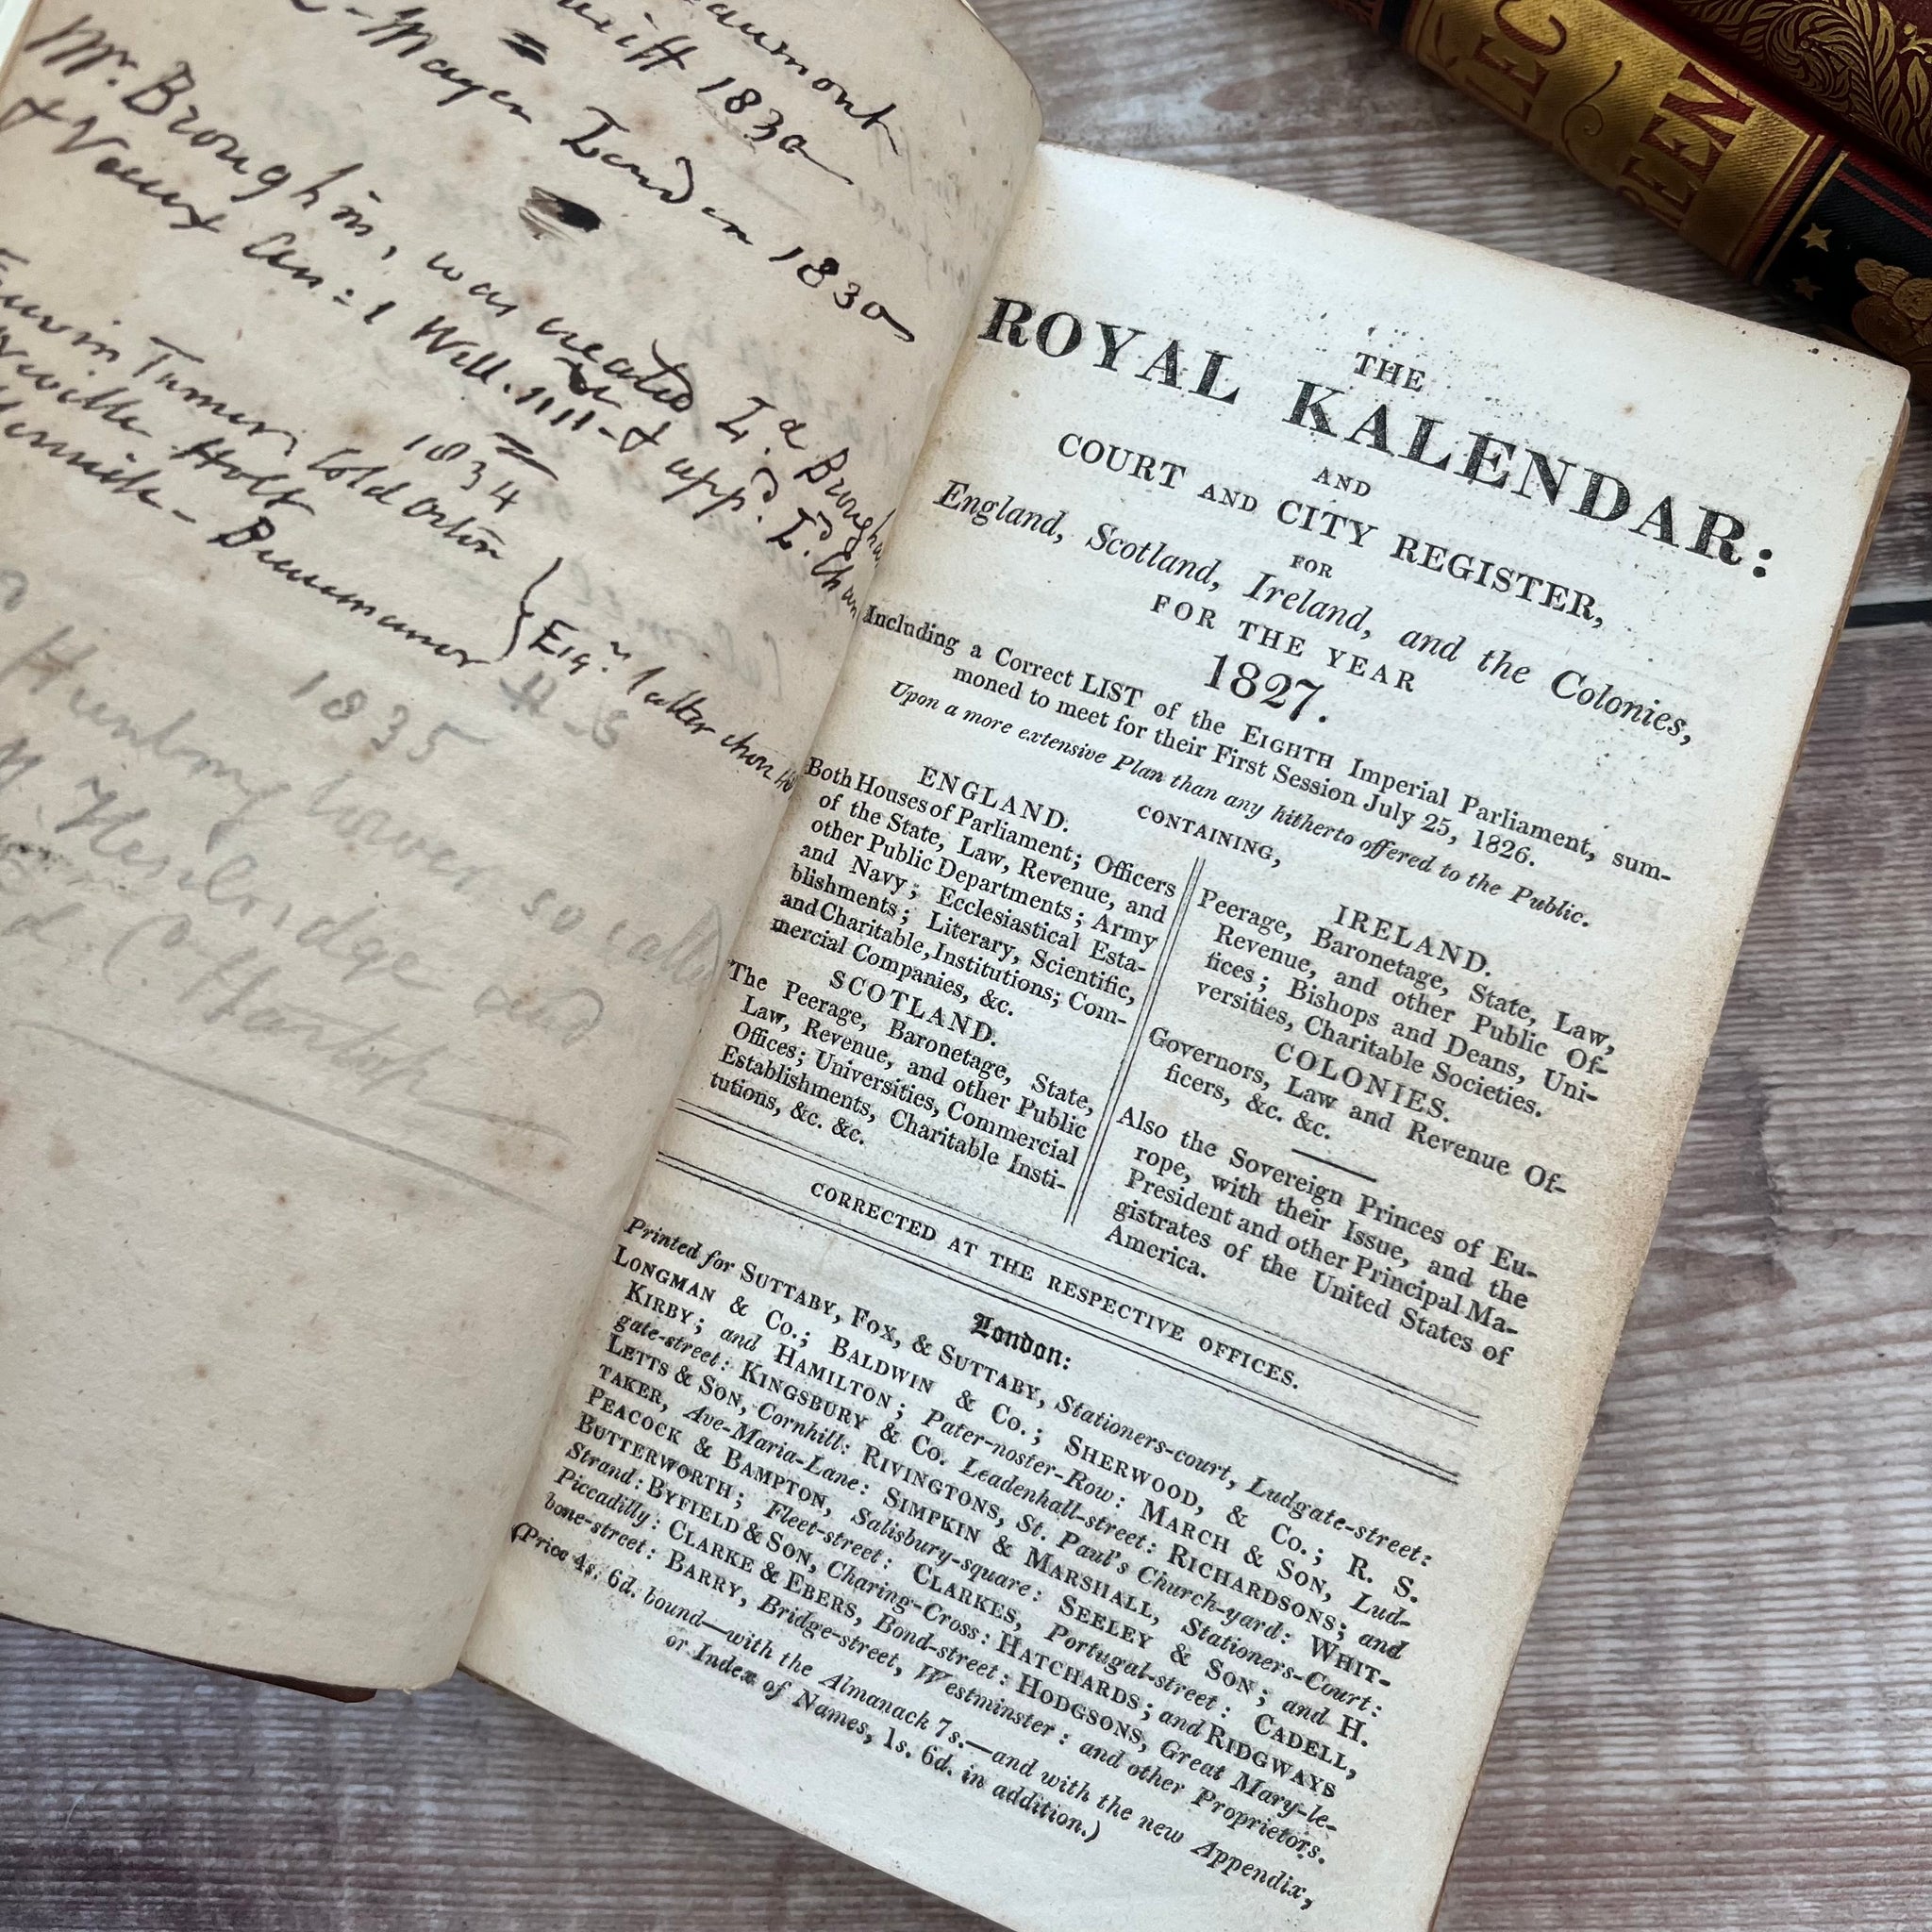 aumont
1830
Mayor London 1830
Mr. Brougham, was created Ld. Brougha
& Vaux An: 1 Will. IIII & app'd. Ld. Chan
1834
Turner, Cold Orton
Holt
Beaumanor
Esqr. latter chosen
H-S
1835
tower so called
Heselridge and
d. C.
THE
ROYAL KALENDAR:
AND
COURT AND CITY REGISTER,
FOR
England, Scotland, Ireland, and the Colonies,
FOR THE YEAR
1827.
Including a Correct LIST of the EIGHTH Imperial Parliament, sum-
moned to meet for their First Session July 25, 1826.
Upon a more extensive Plan than any hitherto offered to the Public.
CONTAINING,
ENGLAND.
Both Houses of Parliament; Officers
of the State, Law, Revenue, and
other Public Departments; Army
and Navy; Ecclesiastical Esta-
blishments; Literary, Scientific,
and Charitable, Institutions; Com-
mercial Companies, &c.
SCOTLAND.
The Peerage, Baronetage, State,
Law, Revenue, and other Public
Offices; Universities, Commercial
Establishments, Charitable Insti-
tutions, &c. &c.
IRELAND.
Peerage, Baronetage, State, Law,
Revenue, and other Public Of-
fices; Bishops and Deans, Uni-
versities, Charitable Societies.
COLONIES.
Governors, Law and Revenue Of-
ficers, &c. &c.
Also the Sovereign Princes of Eu-
rope, with their Issue, and the
President and other Principal Ma-
gistrates of the United States of
America.
CORRECTED AT THE RESPECTIVE OFFICES.
London:
Printed for SUTTABY, FOX, & SUTTABY, Stationers-court, Ludgate-street:
LONGMAN & Co.; BALDWIN & Co.; SHERWOOD, & Co.; R. S.
KIRBY; and HAMILTON; Pater-noster-Row: MARCH & SON, Lud-
gate-street: KINGSBURY & Co. Leadenhall-street: RICHARDSONS; and
LETTS & SON, Cornhill: RIVINGTONS, St. Paul's Church-yard: WHIT-
TAKER, Ave-Maria-Lane: SIMPKIN & MARSHALL, Stationers-Court:
PEACOCK & BAMPTON, Salisbury-square: SEELEY & SON; and H.
BUTTERWORTH; Fleet-street: CLARKES, Portugal-street: CADELL,
Strand: BYFIELD & SON, Charing-Cross: HATCHARDS; and RIDGWAYS
Piccadilly: CLARKE & EBERS, Bond-street: HODGSONS, Great Mary-le-
bone-street: BARRY, Bridge-street, Westminster: and other Proprietors.
(Price 4s. 6d. bound—with the Almanack 7s.—and with the new Appendix,
or Index of Names, 1s. 6d. in addition.)